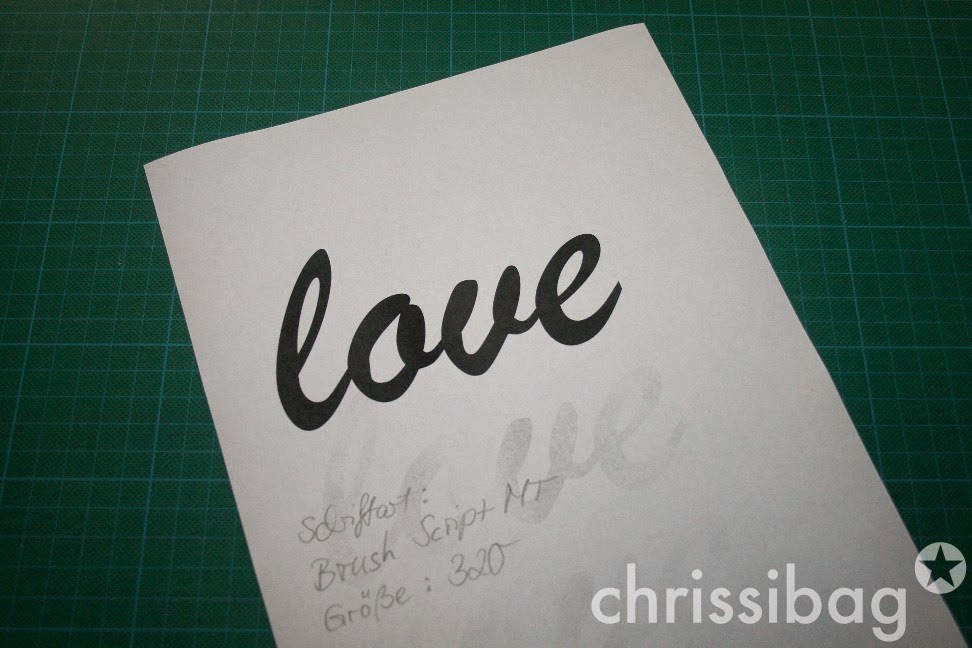 love
love
Schriftart:
Brush Script MT
Größe: 320
chrissibag